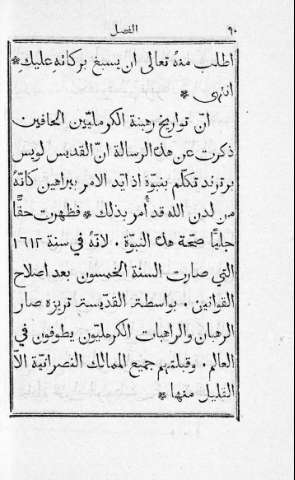 ٩٠ الفصل
اطلب منهُ تعالى ان يسبغ بركاتهُ عليكِ *
انتهى *
ان تواريخ رهبنة الكرمليّين الحافين
ذكرت عن هذه الرسالة انّ القديس لويس
برترند تكلّم بنبوّة اذ ايّد الامر ببراهين كانهُ
من لدن الله قد أمر بذلك * فظهرت حقًّا
جليًّا صحّة هذه النبوّة . لانهُ في سنة ١٦١٢
التي صارت السنة الخمسون بعد اصلاح
القوانين . بواسطة القدّيسة تريزه صار
الرهبان والراهبات الكرمليّون يطوفون في
العالم . وقبلتهم جميع الممالك النصرانيّة الّا
القليل منها *